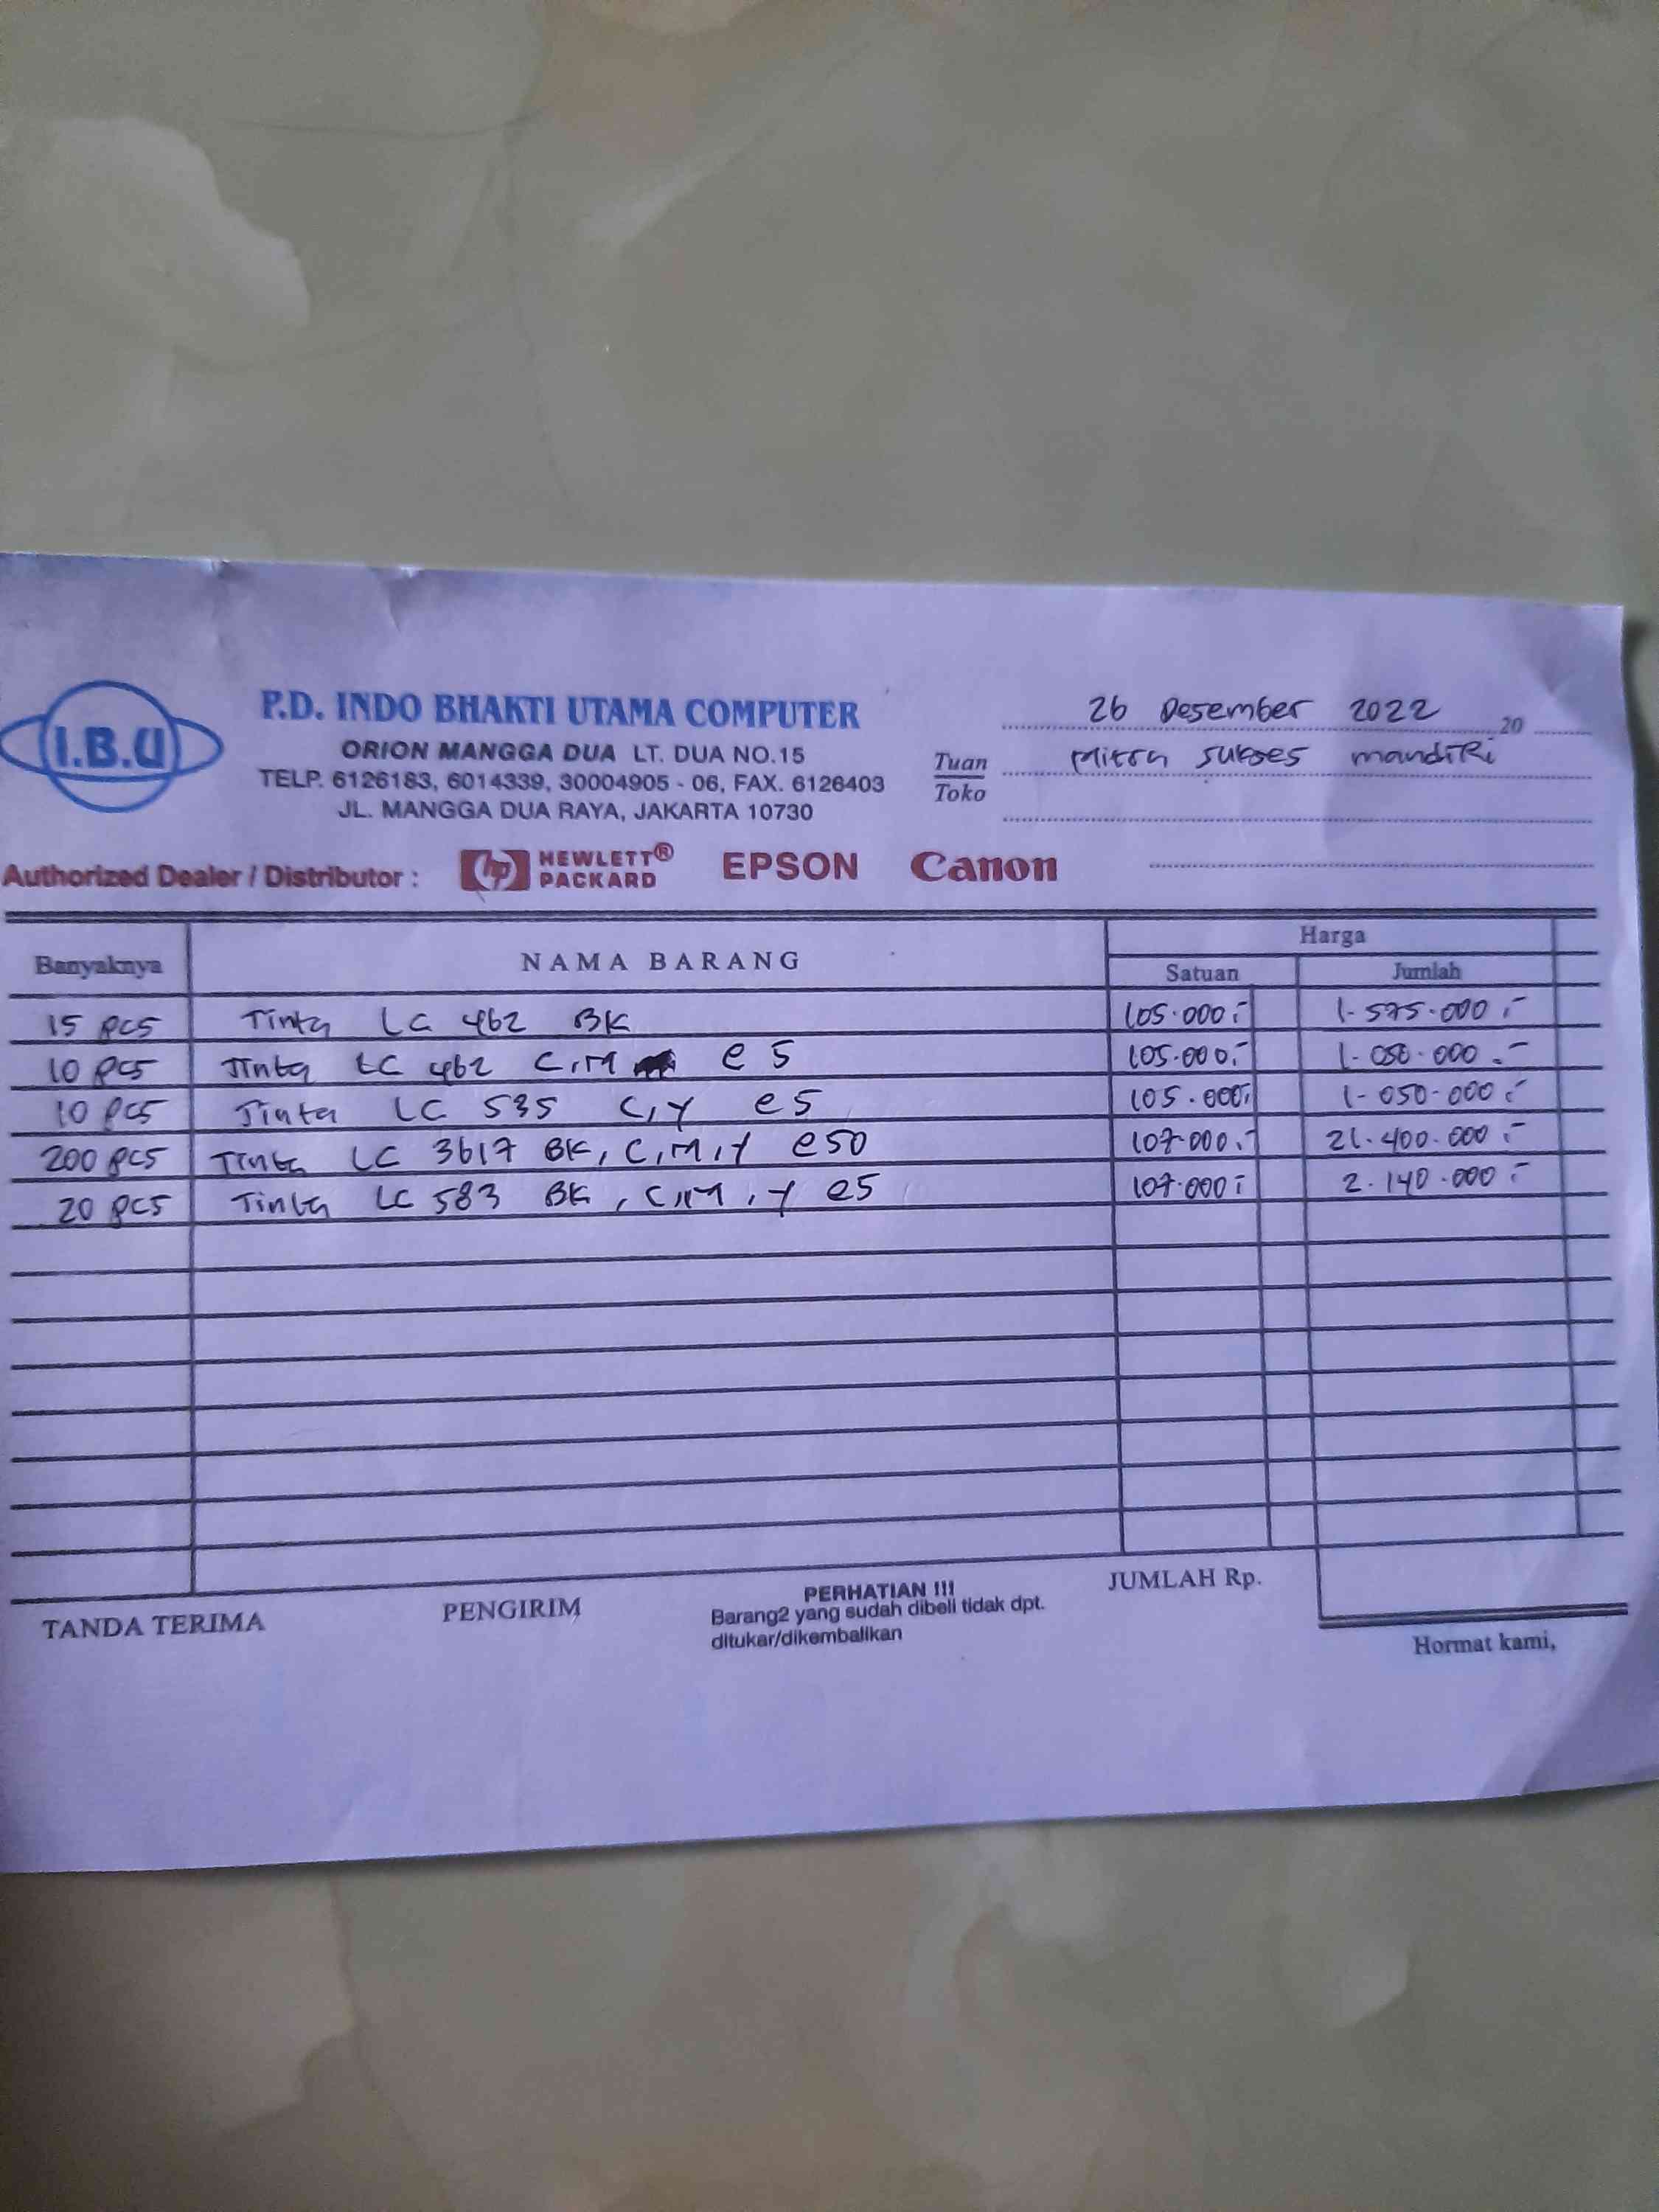 I.B.U
P.D. INDO BHAKTI UTAMA COMPUTER
ORION MANGGA DUA LT. DUA NO.15
TELP. 6126183, 6014339, 30004905 - 06, FAX. 6126403
JL. MANGGA DUA RAYA, JAKARTA 10730
26 Desember 2022 20
Tuan Mitra Sukses mandiri
Toko
Authorized Dealer / Distributor : hp HEWLETT® PACKARD EPSON Canon
Banyaknya NAMA BARANG Harga
Satuan Jumlah
15 pcs Tinta LC 462 BK 105.000,- 1.575.000,-
10 pcs Tinta LC 462 C,M @ 5 105.000,- 1.050.000,-
10 pcs Tinta LC 535 C,Y @ 5 105.000,- 1.050.000,-
200 pcs Tinta LC 3617 BK, C,M,Y @ 50 107.000,- 21.400.000,-
20 pcs Tinta LC 583 BK, C,M,Y @ 5 107.000,- 2.140.000,-
TANDA TERIMA PENGIRIM PERHATIAN !!! JUMLAH Rp.
Barang2 yang sudah dibeli tidak dpt.
ditukar/dikembalikan
Hormat kami,